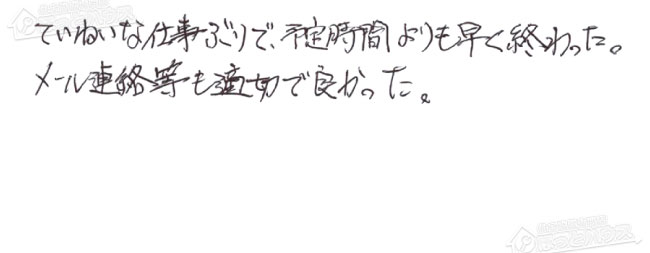 ていねいな仕事ぶりで、予定時間よりも早く終わった。
メール連絡等も適切で良かった。